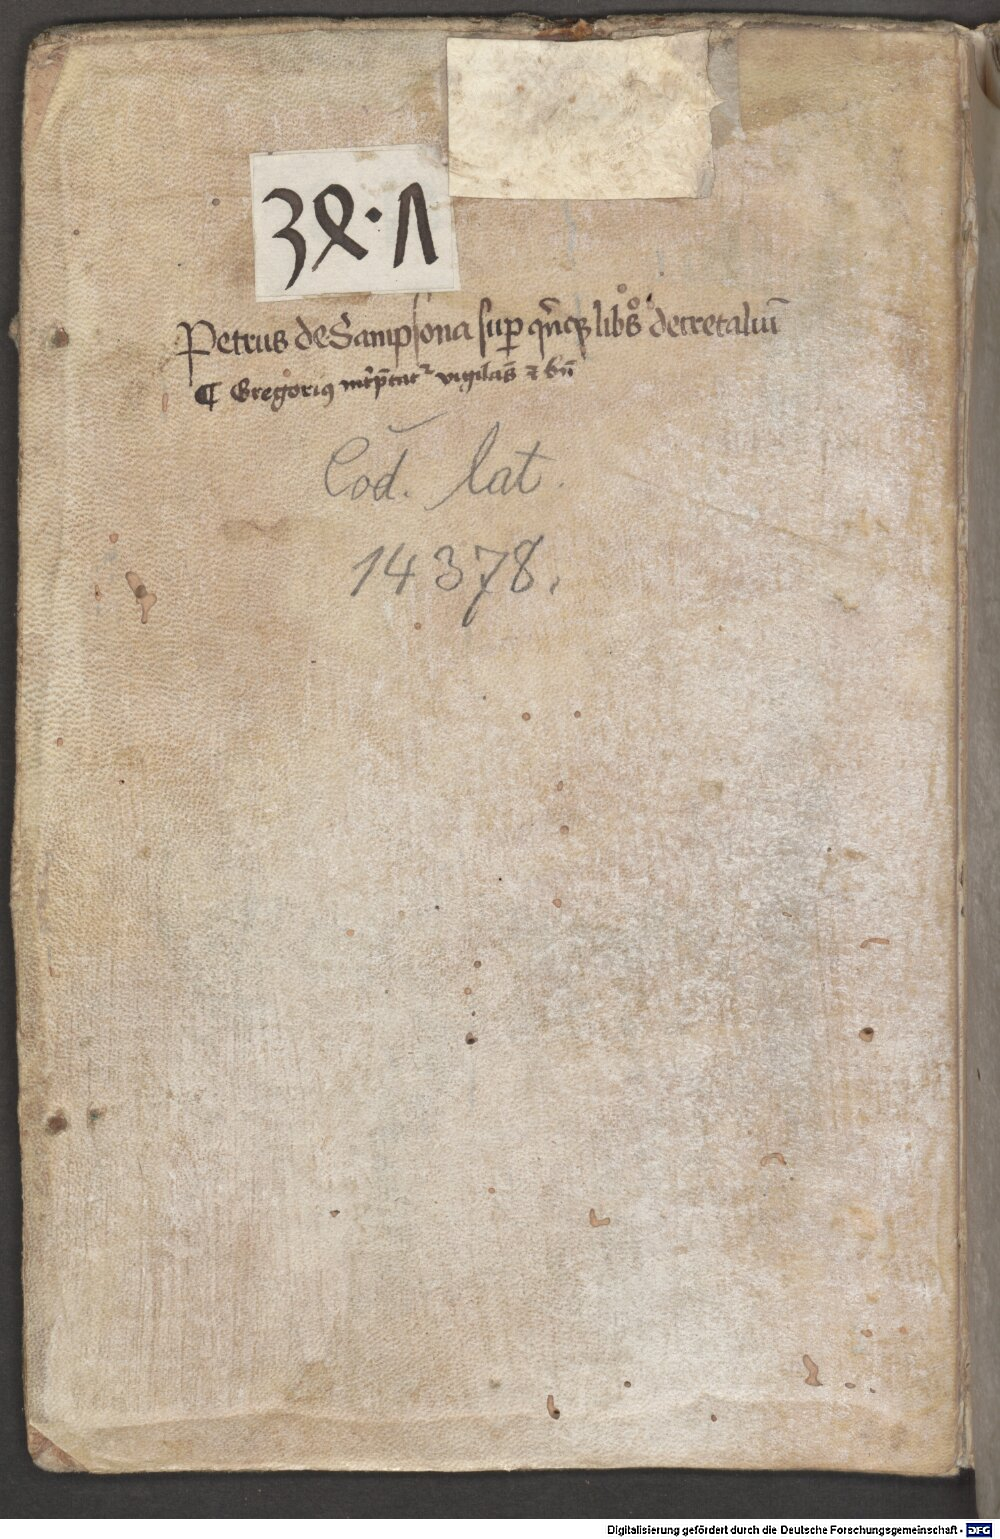 34·Λ
Petrus de Sampsona sup qn̄qꝫ libꝰs decretaliū
¶ Gregoriꝰ int̄p̄tat᷑ vigilās ⁊ bn̄
Cod. lat.
14378.
Digitalisierung gefördert durch die Deutsche Forschungsgemeinschaft - DFG